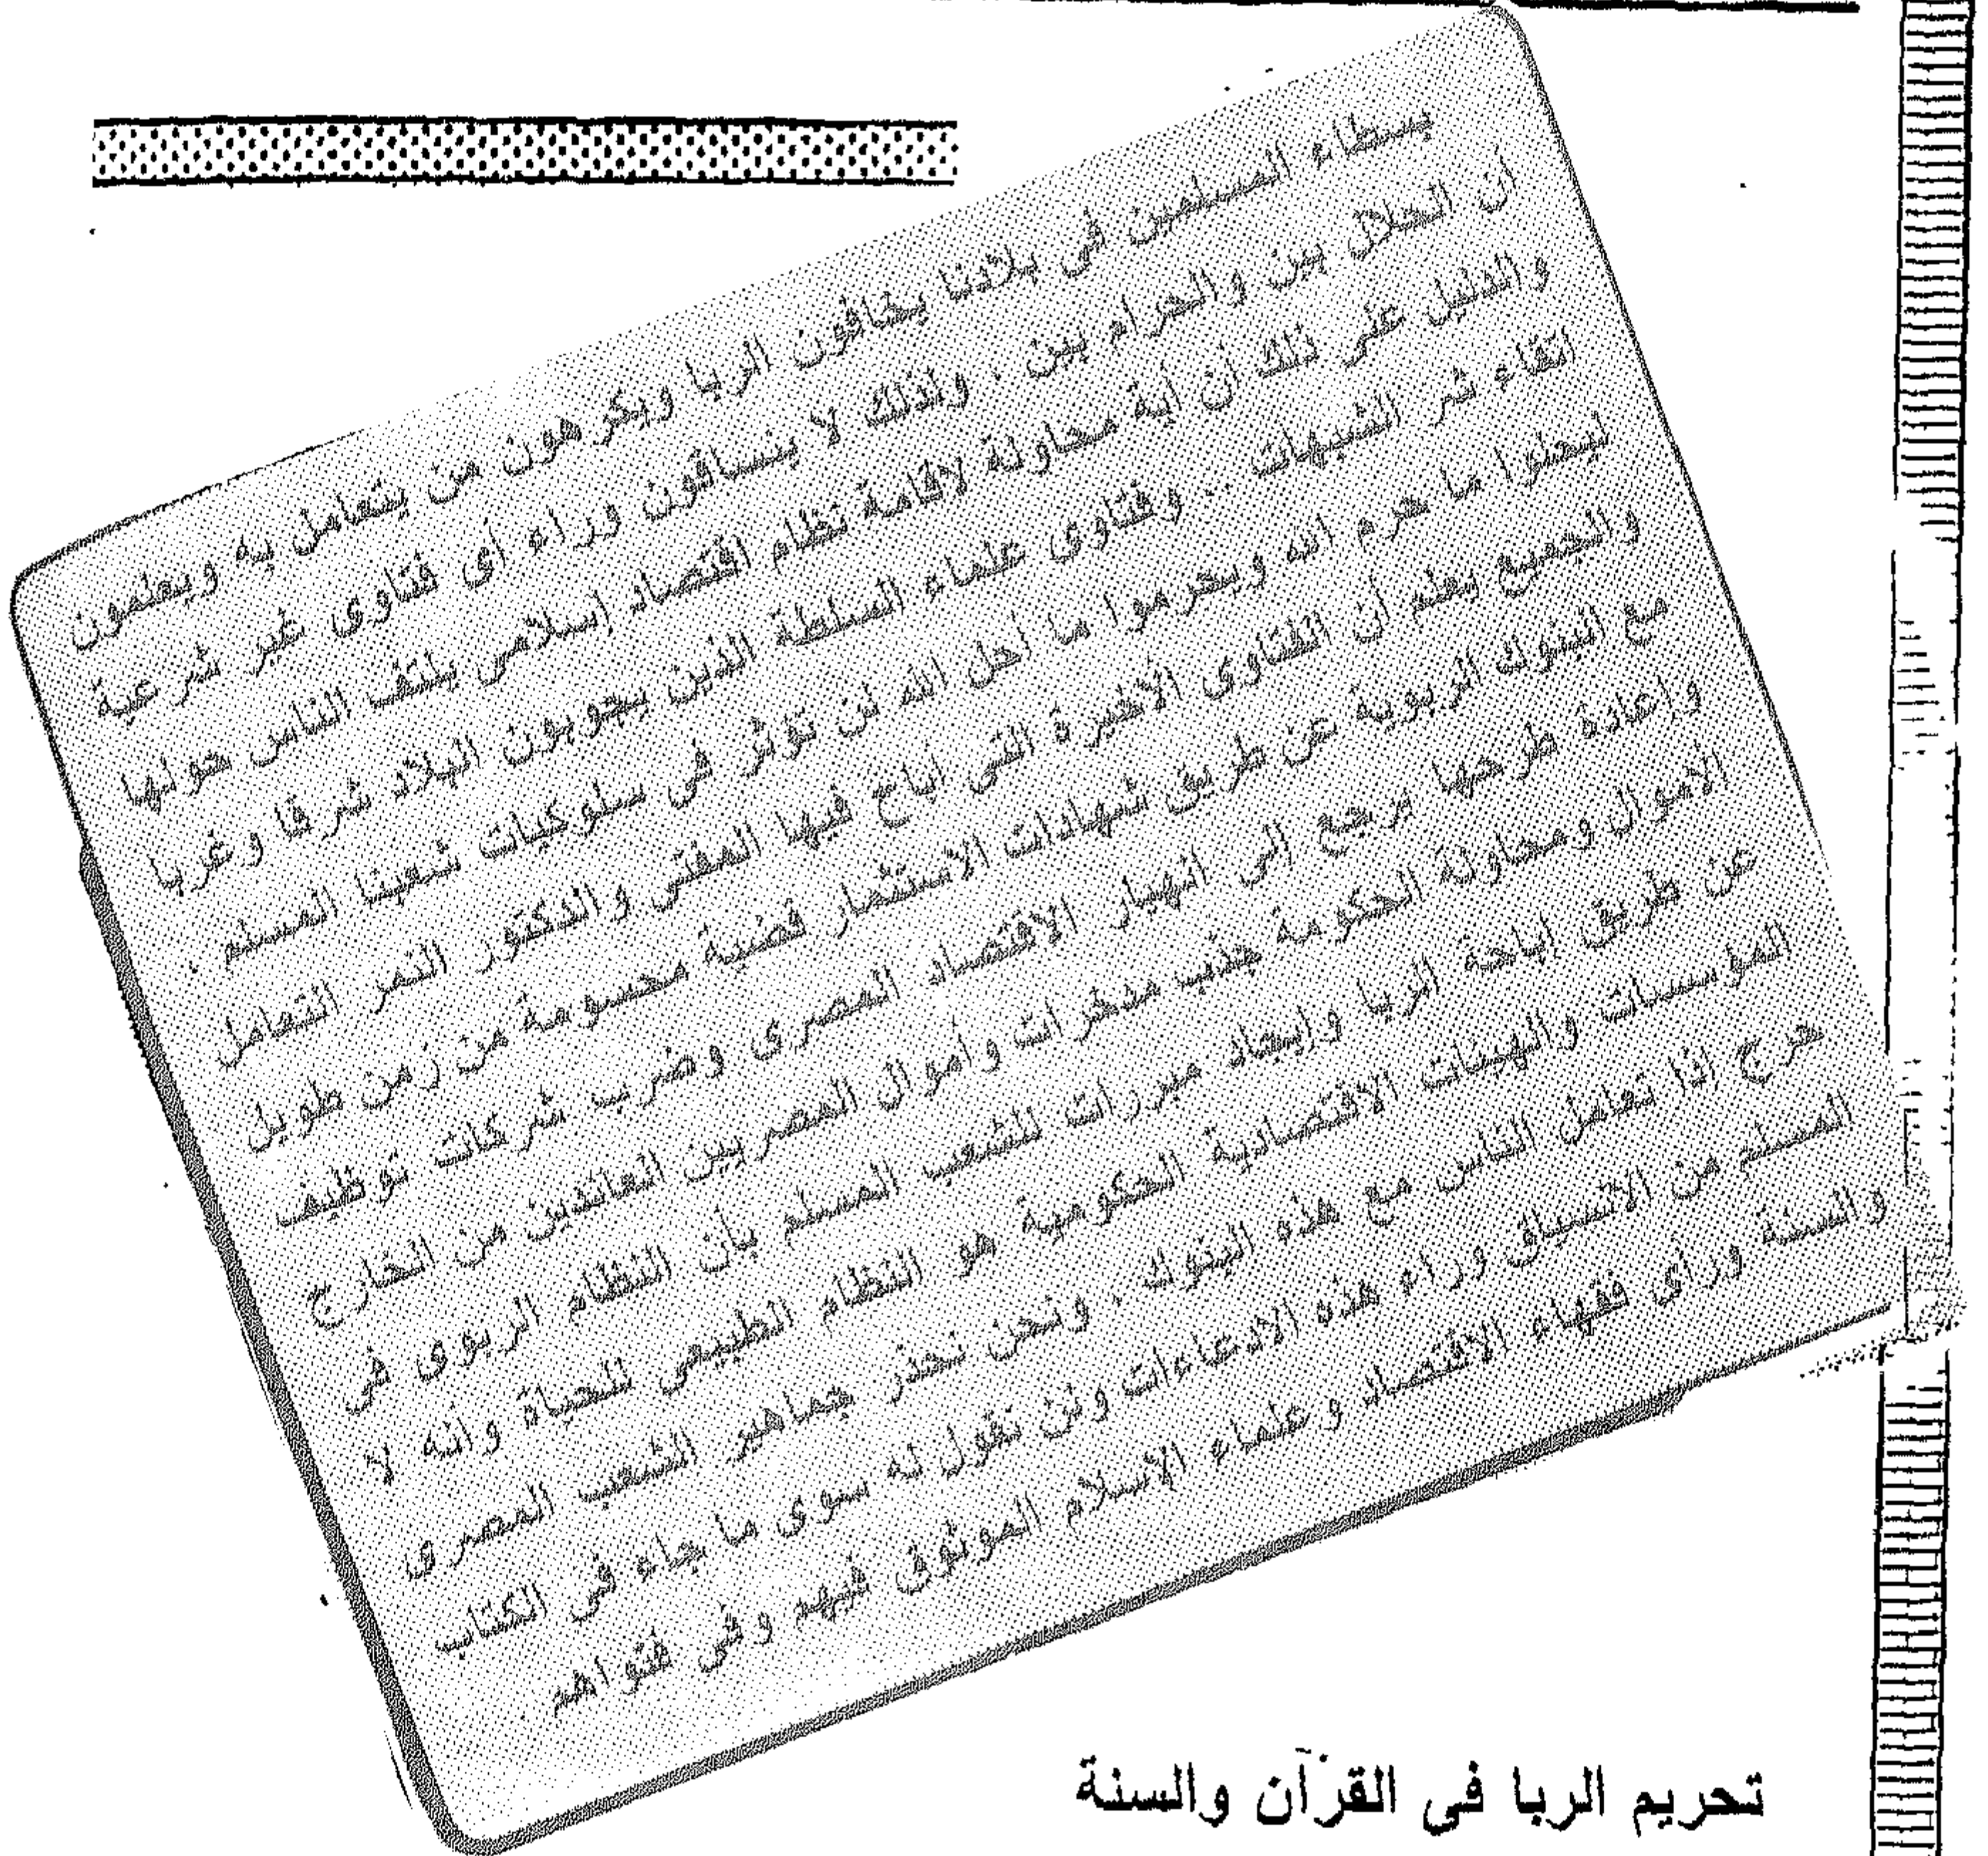 بسطاء المسلمين فى بلادنا يخافون الربا ويكرهون من يتعامل به ويعلمون
أن الحلال بين والحرام بين . ولذلك لا ينساقون وراء أى فتاوى غير شرعية
والدليل على ذلك أن أية محاولة لاقامة نظام اقتصاد إسلامى يلتف الناس حولها
اتقاء شر الشبهات .. وفتاوى علماء السلطة الذين يجوبون البلاد شرقا وغربا
ليحلوا ما حرم الله ويحرموا ما أحل الله لن تؤثر فى سلوكيات شعبنا المسلم .
والجميع يعلم أن الفتاوى الأخيرة التى أباح فيها المفتى والدكتور النمر التعامل
مع البنوك الربوية عن طريق شهادات الاستثمار قضية محسومة من زمن طويل
وإعادة طرحها يرجع الى انهيار الاقتصاد المصرى وضرب شركات توظيف
الأموال ومحاولة الحكومة جذب مدخرات وأموال المصريين العائدين من الخارج
عن طريق إباحة الربا وإيجاد مبررات للشعب المسلم بأن النظام الربوى فى
المؤسسات والهيئات الاقتصادية الحكومية هو النظام الطبيعى للحياة وأنه لا
حرج اذا تعامل الناس مع هذه البنوك . ونحن نحذر جماهير الشعب المصرى
المسلم من الانسياق وراء هذه الادعاءات ولن نقول له سوى ما جاء فى الكتاب
والسنة ورأى فقهاء الاقتصاد وعلماء الاسلام الموثوق فيهم وفى فتواهم .
تحريم الربا فى القرآن والسنة